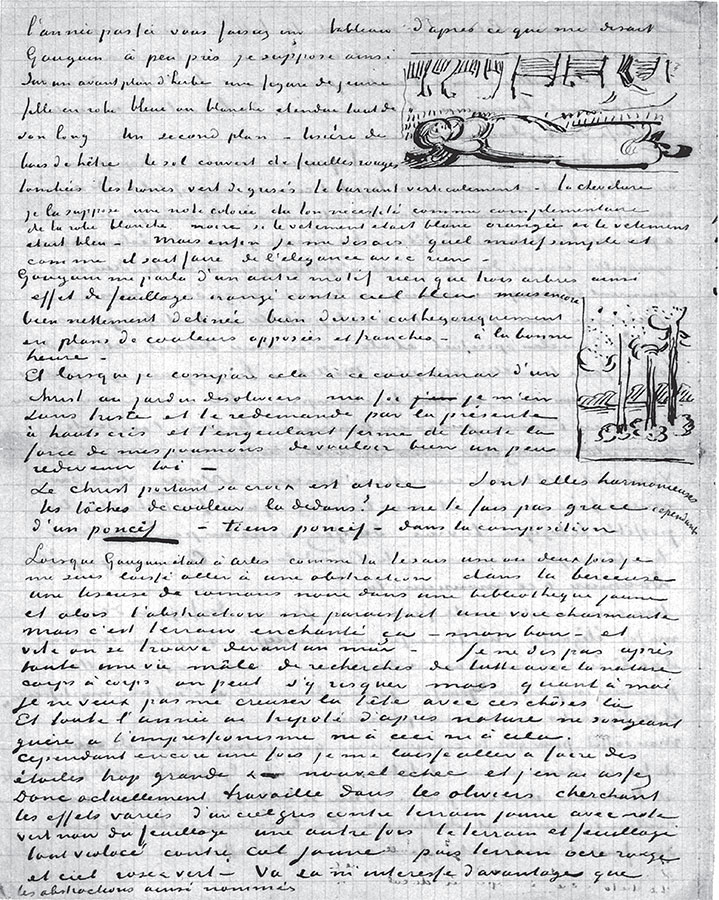 l'année passée vous faisiez un tableau d'après ce que me disait
Gauguin à peu près je suppose ainsi
Sur un avant plan d'herbe une figure de jeune
fille en robe bleue ou blanche etendue tout de
son long Un second plan – lisière de
bois de hêtre le sol couvert de feuilles rouges
tombées les troncs vert de grisés le barrant verticalement – la chevelure
je la suppose une note colorée du ton nécessité comme complémentaire
de la robe blanche noire si le vetement était blanc orangée si le vetement
etait bleu – Mais enfin je me disais quel motif simple et
comme il sait faire de l'élegance avec rien –
Gauguin me parla d'un autre motif rien que trois arbres ainsi
effet de feuillage orangé contre ciel bleu mais encore
bien nettement delinée bien divisé cathegoriquement
en plans de couleurs opposées et franches – à la bonne
heure –
Et lorsque je compare cela à ce cauchemar d'un
christ au jardin des oliviers ma foi je m'en
sens triste et te redemande par la présente
à hauts cris et t'engeulant ferme de toute la
force de mes poumons de vouloir bien un peu
redevenir toi –
Le Christ portant sa croix est atroce Sont elles harmonieuses
les tâches de couleur la dedans? Je ne te fais pas grace cependant
d'un poncif – tiens poncif – dans la composition
Lorsque Gauguin était à Arles comme tu le sais une ou deux fois je
me suis laissé aller à une abstraction dans la berceuse
une liseuse de romans noire dans une bibliotheque jaune
et alors l'abstraction me paraissait une voie charmante
Mais c'est terrain enchanté ça – mon bon – et
vite on se trouve devant un mur – Je ne dis pas après
toute une vie mâle de recherches de lutte avec la nature
corps à corps on peut s'y risquer mais quant à moi
je ne veux pas me creuser la tête avec ces chôses là
Et toute l'année ai tripoté d'après nature ne songeant
guère à l'impressionisme ni à ceci ni à cela.
Cependant encore une fois je me laisse aller à faire des
étoiles trop grande & – nouvel echec et j'en ai assez
Donc actuellement travaille dans les oliviers cherchant
les effets variés d'un ciel gris contre terrain jaune avec note
vert noir du feuillage une autre fois le terrain et feuillage
tout violacé contre ciel jaune puis terrain ocre rouge
et ciel rose vert – Va ça m'interesse d'avantage que
les abstractions ainsi nommées